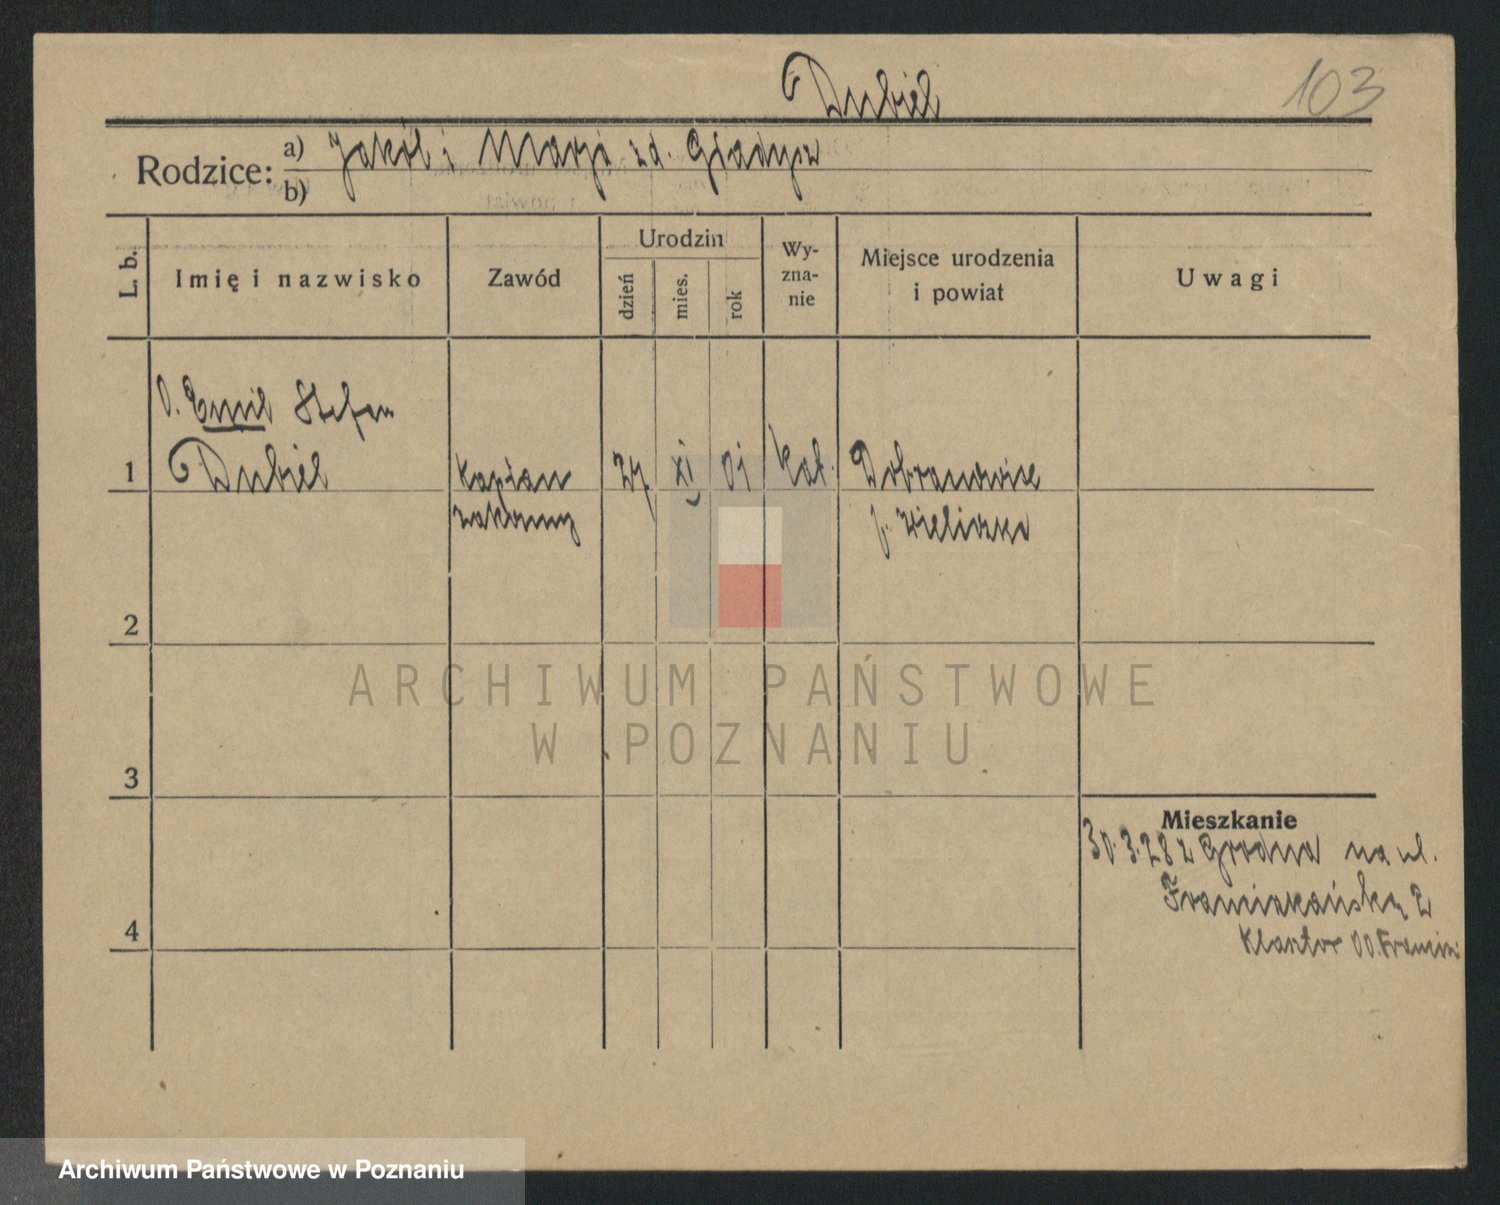 Dubiel 103
Rodzice: a) Jakób i Marja zd. Gładysz
b)
L. b. Imię i nazwisko Zawód Urodzin dzień mies. rok Wy-zna-nie Miejsce urodzenia i powiat Uwagi
O. Emil Stefan
1 Dubiel kapłan 27 XI 01 kat. Dobranowice
zakonny p. Wieliczka
2
3
Mieszkanie
30.3.28 z Grodna na ul.
Franciszkańską 2
4 Klasztor OO. Francisz
ARCHIWUM PAŃSTWOWE
W POZNANIU
Archiwum Państwowe w Poznaniu